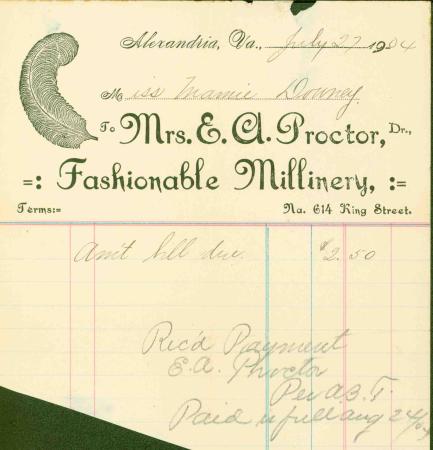 Alexandria, Va., July 27 1904
Miss Mamie Downey
To Mrs. E. A. Proctor, Dr.,
=: Fashionable Millinery, :=
Terms:= No. 614 King Street.
Am't bill due. $2.50
Rec'd Payment
E.A. Proctor
Per A.B.T.
Paid in full Aug 24/04